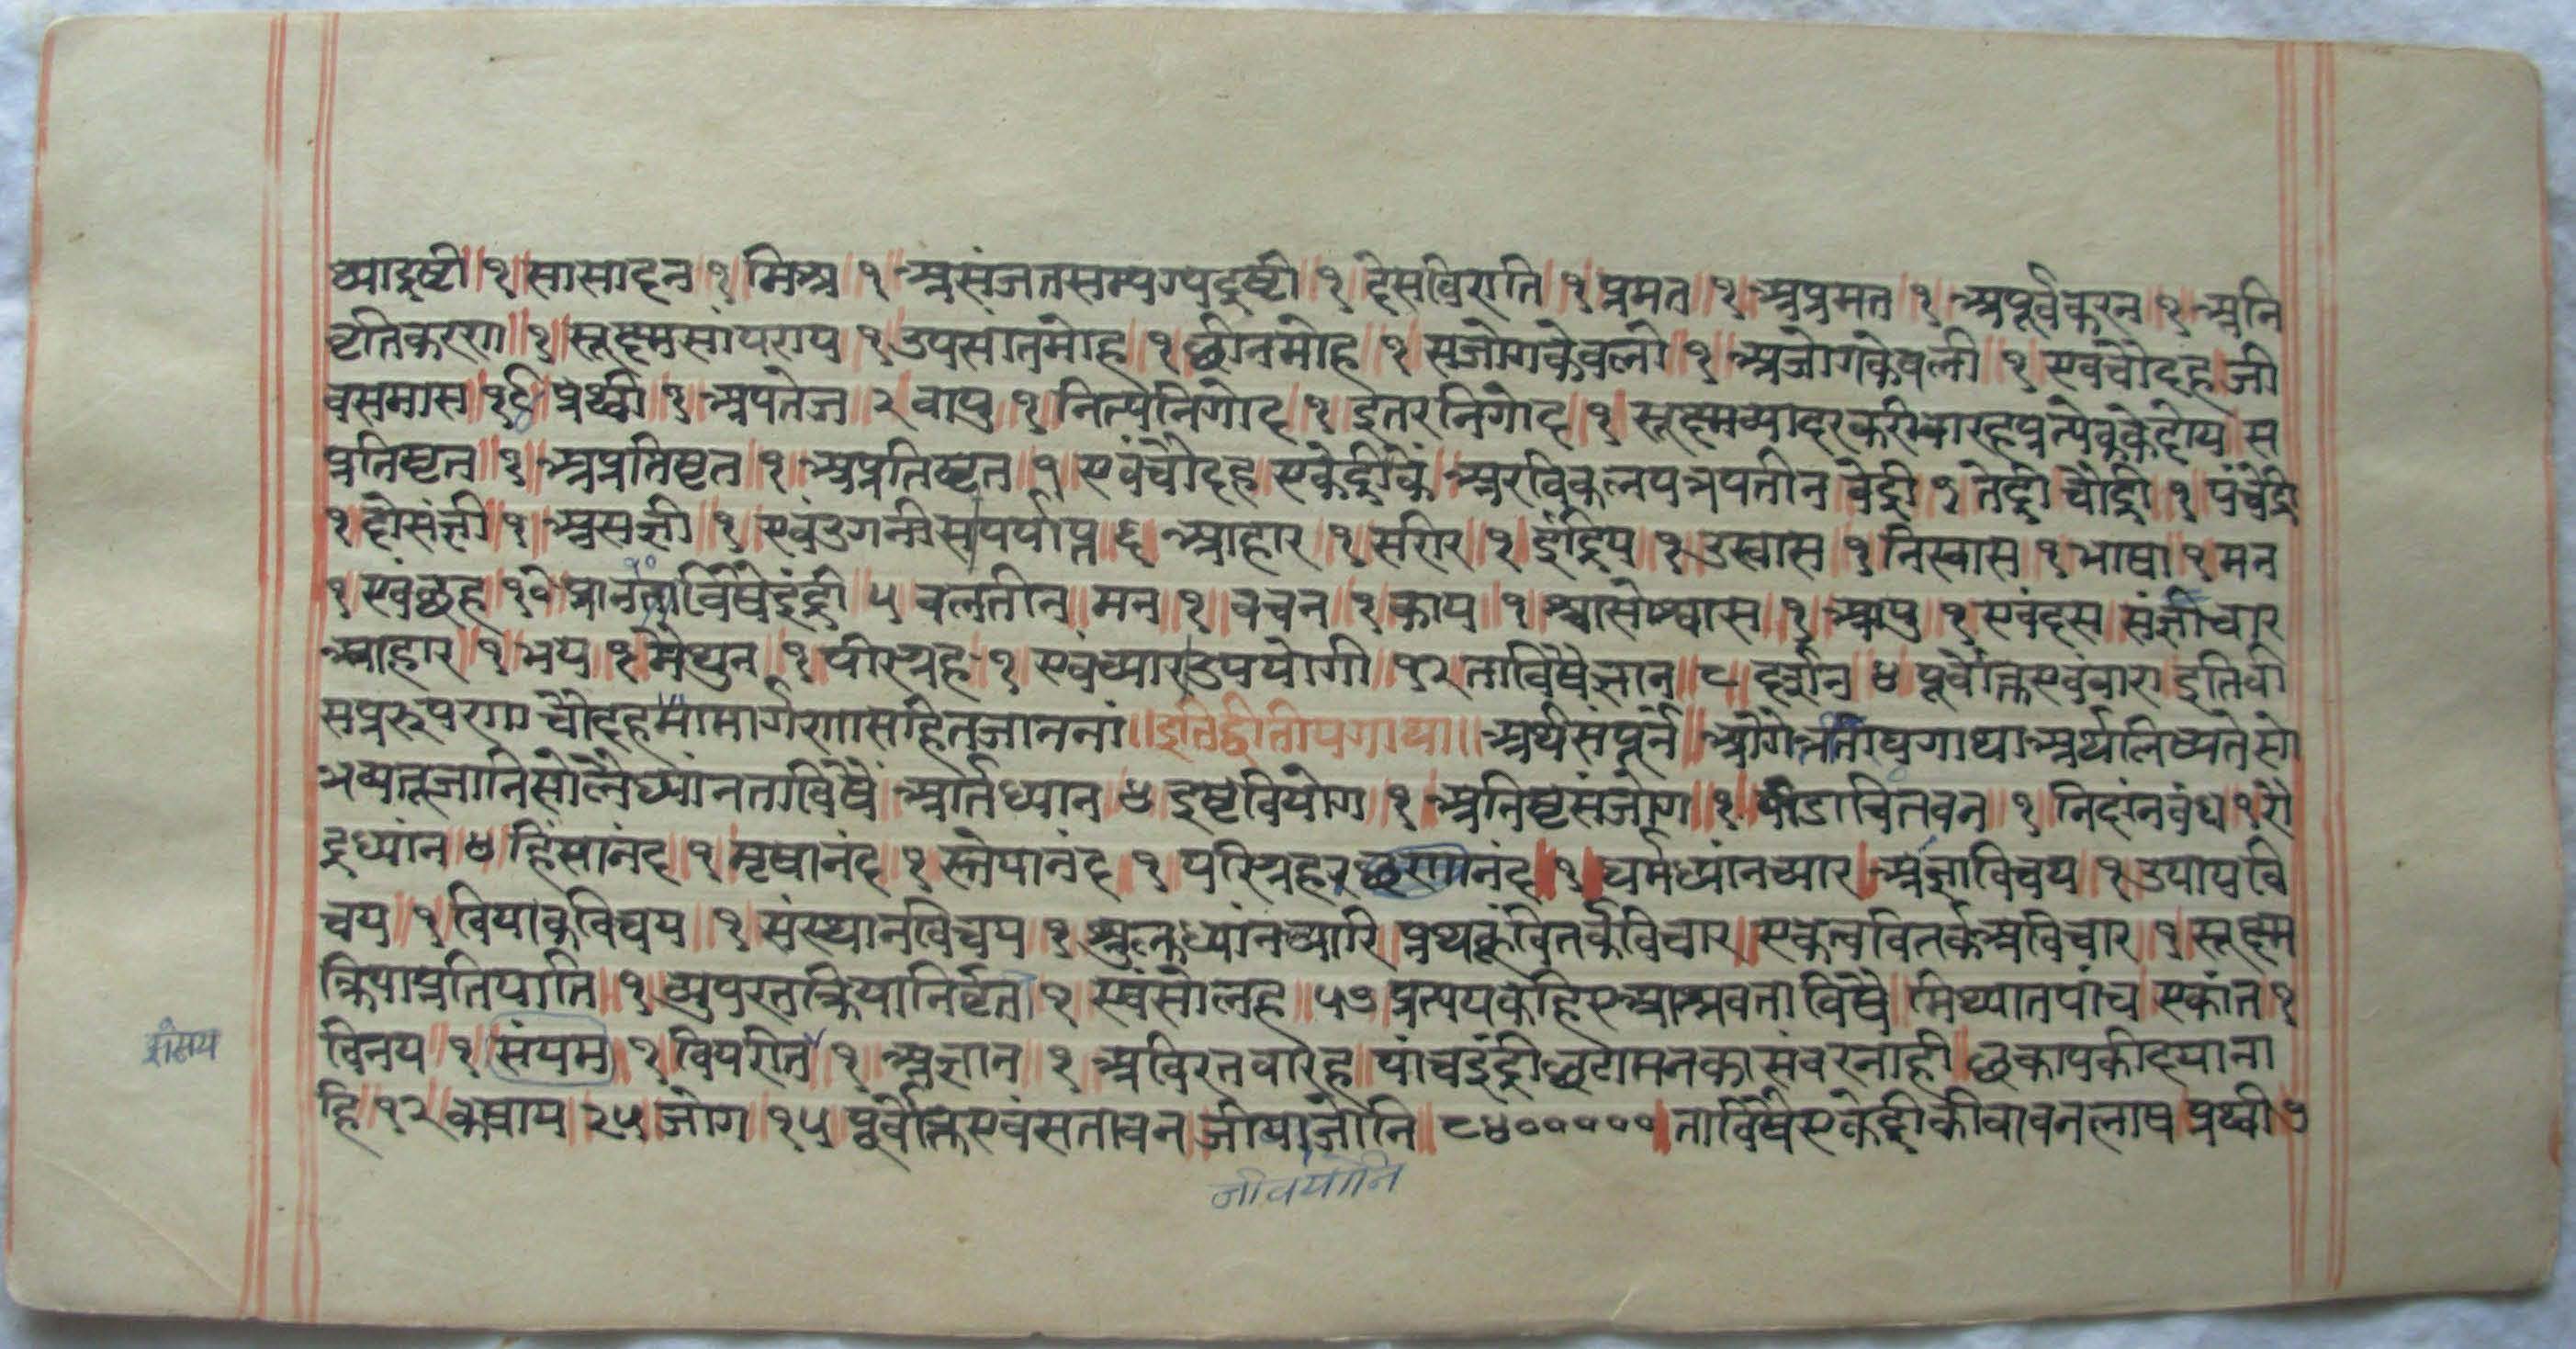 थ्यादृष्टी ॥ १ ॥ सासादन ॥ १ ॥ मिश्र ॥ १ ॥ असंजतसम्यग्यदृष्टी ॥ १ ॥ देसविराति ॥ १ ॥ प्रमत ॥ १ ॥ अप्रमत ॥ १ ॥ अपूर्वकरन ॥ १ ॥ अनि
वृतिकरण ॥ १ ॥ सूक्ष्मसांपराय ॥ १ ॥ उपसांतमोह ॥ १ ॥ छीनमोह ॥ १ ॥ सजोगकेवली ॥ १ ॥ अजोगकेवली ॥ १ ॥ एवंचौदह जी
वसमास १९ प्रथ्वी ॥ १ ॥ अपतेज २ वायु ॥ १ ॥ नित्यनिगोद ॥ १ ॥ इतरनिगोद ॥ १ ॥ सूक्ष्मव्यादरकरीबारह प्रत्येककेदोय स
प्रतिष्टत ॥ १ ॥ अप्रतिष्टत ॥ १ ॥ अप्रतिष्टत १ एवंचौदह एकेंद्रीकें अरविकलनयत्रपतीन वेंद्री १ तेंद्री चौंद्री ॥ १ ॥ पंचेंद्री
१ दोसंज्ञी ॥ १ ॥ असज्ञी ॥ १ ॥ एवंउगनीस पर्याप्त ६ आहार ॥ १ ॥ सरीर ॥ १ ॥ इंद्रिय ॥ १ ॥ उस्वास ॥ १ ॥ निस्वास ॥ १ ॥ भाषा ॥ १ ॥ मन
१ एवंछह प्रानताविषेइंद्री ५ वलतीन मन ॥ १ ॥ वचन ॥ १ ॥ काय ॥ १ ॥ श्वासोश्वास ॥ १ ॥ आयु ॥ १ ॥ एवंदस संज्ञाचार
आहार ॥ १ ॥ भय ॥ १ ॥ मैथुन ॥ १ ॥ परिग्रह ॥ १ ॥ एवंच्यार उपयोगी ॥ १२ ताविषैज्ञान ८ दर्शन ४ पूर्वोक्तिएवंबारा इतिवी
सप्ररुपरणा चौदहमामार्गणासहितजाननां ॥ इतिद्वीतीयगाथा ॥ अर्थसंपूर्न आगेत्रतीयगाथाअर्थलिष्यतेसो
भव्यतूजानिसोलैध्यांनताविषैं आर्तध्यान ४ इष्टवियोग ॥ १ ॥ अनिष्टसंजोग ॥ १ ॥ पीडाचितवन ॥ १ ॥ निदांनबंध ॥ १ ॥ रौ
द्रध्यांन ४ हिंसानंद ॥ १ ॥ मृषानंद ॥ १ ॥ स्तेयानंद ॥ १ ॥ परिग्रहर छणानंद ॥ १ ॥ धर्मध्यांनच्यार अज्ञाविचय ॥ १ ॥ उपायवि
चय ॥ १ ॥ विपाकविचय ॥ १ ॥ संस्थानविचय ॥ १ ॥ शुक्लध्यांनच्यारि प्रथकवितर्कविचार एकत्ववितर्कअविचार ॥ १ ॥ सूक्ष्म
क्रियाप्रतिपाति ॥ १ ॥ व्युपरतक्रियानिर्वृत ॥ १ ॥ एवंसोलह ५७ प्रत्ययकहिएआश्रवताविषै मिथ्यातपांच एकांत १
विनय ॥ १ ॥ संयम ॥ १ ॥ विपरीत ॥ १ ॥ अज्ञान ॥ १ ॥ अविरतबारह पांचइंद्रीछठामनकासंवरनांही छकायकीदयाना
संशय
हि १२ कषाय २५ जोग १५ पूर्वोक्तिएवंसतावन जीयाजोनि ८४००००० ताविषैएकेंद्रीकीवावनलाष प्रथ्वी ७
जीवयोनि